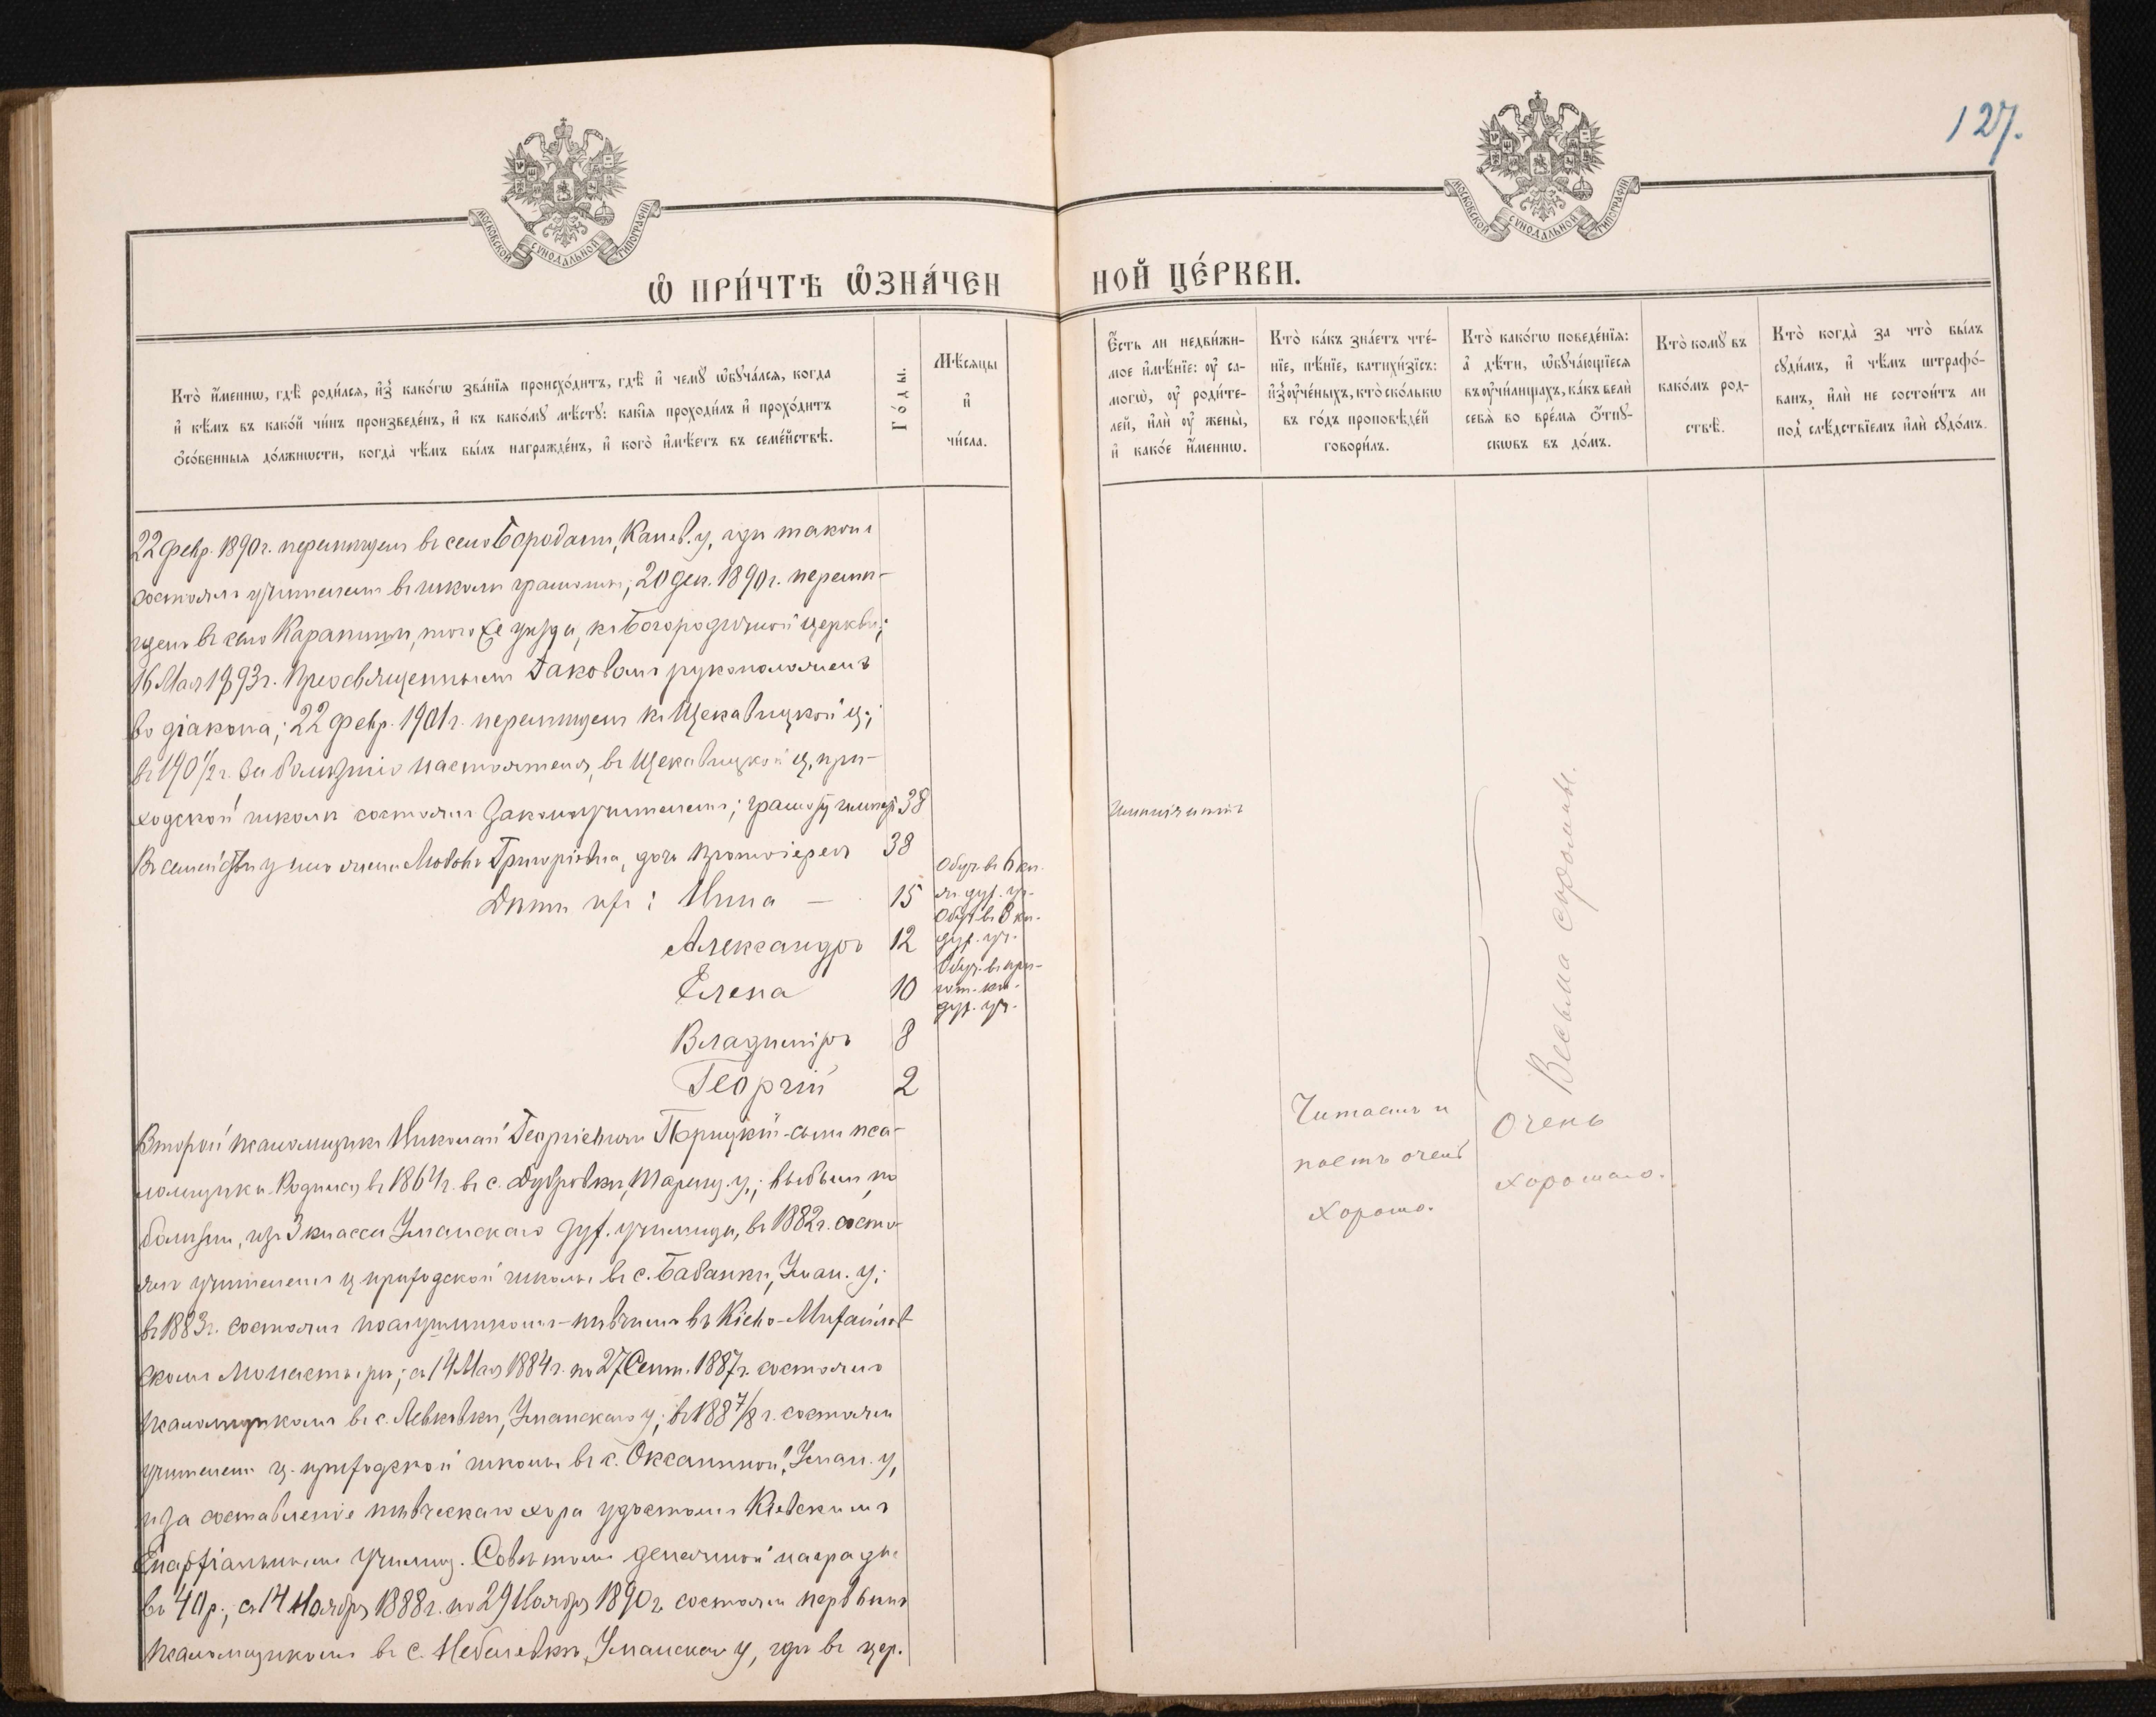 127.
МОСКОВСКОЙ СѴНОДАЛЬНОЙ ТИПОГРАФІИ
МОСКОВСКОЙ СѴНОДАЛЬНОЙ ТИПОГРАФІИ
Ѡ ПРИ́ЧТѢ ѠЗНА́ЧЕН
НОЙ ЦЕ́РКВИ.
Кто̀ и҆́меннѡ, гдѣ̀ роди́лсѧ, и҆з̾ како́гѡ зва́нїѧ происхо́дитъ, гдѣ̀ и҆ чемꙋ̀ ѡ҆бꙋча́лсѧ, когда
и҆ кѣ́мъ въ како́й чи́нъ произведе́нъ, и҆ къ како́мꙋ мѣ́стꙋ: какі̑ѧ проходи́лъ и҆ прохо́дитъ
ѻ҆со́бенныѧ до́лжнѡсти, когда̀ чѣ́мъ бы́лъ награжде́нъ, и҆ кого̀ и҆мѣ́етъ въ семе́йствѣ.
Го́ды.
Мѣ́сѧцы
и҆
чи́сла.
Є҆́сть ли недви́жи-
мое и҆мѣ́нїе: ᲂу҆ са-
могѡ̀, ᲂу҆ роди́те-
лей, и҆лѝ ᲂу҆ жены̀,
и҆ како́е и҆́меннѡ.
Кто̀ ка́къ зна́етъ чте́-
нїе, пѣ́нїе, катихи́зїсъ:
и҆з̾ ᲂу҆че́ныхъ, кто̀ ско́лькѡ
въ го́дъ проповѣ́дей
говори́лъ.
Кто̀ како́гѡ поведе́нїѧ:
а҆ дѣ́ти, ѡ҆бꙋча́ющїесѧ
въ ᲂу҆чи́лищахъ, ка́къ велѝ
себѧ̀ во вре́мѧ ѿпꙋ-
скѡвъ въ до́мъ.
Кто̀ комꙋ̀ въ
како́мъ род-
ствѣ̀.
Кто̀ когда̀ за что̀ бы́лъ
сꙋди́мъ, и҆ чѣ́мъ штрафо́-
ванъ, и҆лѝ не состои́тъ ли
под̾ слѣ́дствїемъ и҆лѝ сꙋдо́мъ.
22 февр. 1890 г. перемѣщенъ въ село Бородани, Канев. у., гдѣ также
состоялъ учителемъ въ школѣ грамоты; 20 дек. 1890 г. перемѣ-
щенъ въ село Карапиши, того же уѣзда, къ Богородичной церкви;
16 Мая 1893 г. Преосвященнымъ Іаковомъ рукоположенъ
во діакона; 22 февр. 1901 г. перемѣщенъ къ Щекавицкой ц.;
въ 1901/2 г. за болѣзнію настоятеля, въ Щекавицкой ц. при-
ходской школѣ состоялъ Законоучителемъ; грамоту имѣетъ 38
Въ семействѣ у него жена Любовь Григоріевна, дочь протоіерея 38
Дѣти ихъ: Нина — 15
Обуч. въ 6 кл.
ж. дух. уч.
Александръ 12
Обуч. въ 3 кл.
дух. уч.
Елена 10
Обуч. въ при-
гот. кл.
дух. уч.
Владиміръ 8
Георгій 2
Не имѣетъ
Весьма скромны.
Второй псаломщикъ Николай Георгіевичъ Порицкій - сынъ пса-
ломщика. Родился въ 1864 г. въ с. Дубровкѣ, Таращ. у.; выбылъ, по
болѣзни, изъ 3 класса Уманскаго дух. училища, въ 1882 г. состо-
ялъ учителемъ ц. приходской школы въ с. Бабанкѣ, Уман. у.;
въ 1883 г. состоялъ послушникомъ-пѣвчимъ въ Кіево-Михайлов-
скомъ Монастырѣ; съ 14 Мая 1884 г. по 27 Сент. 1887 г. состоялъ
псаломщикомъ въ с. Левковкѣ, Уманскаго у.; въ 1887/8 г. состоялъ
учителемъ ц. приходской школы въ с. Оксаниной, Уман. у.,
и за составленіе пѣвческаго хора удостоенъ Кіевскимъ
Епархіальнымъ Училищ. Совѣтомъ денежной награды
въ 40 р.; съ 14 Ноября 1888 г. по 29 Ноября 1890 г. состоялъ первымъ
псаломщикомъ въ с. Небелевкѣ, Уманскаго у., гдѣ въ цер.
Читаетъ и
поетъ очень
хорошо.
Очень
хорошаго.